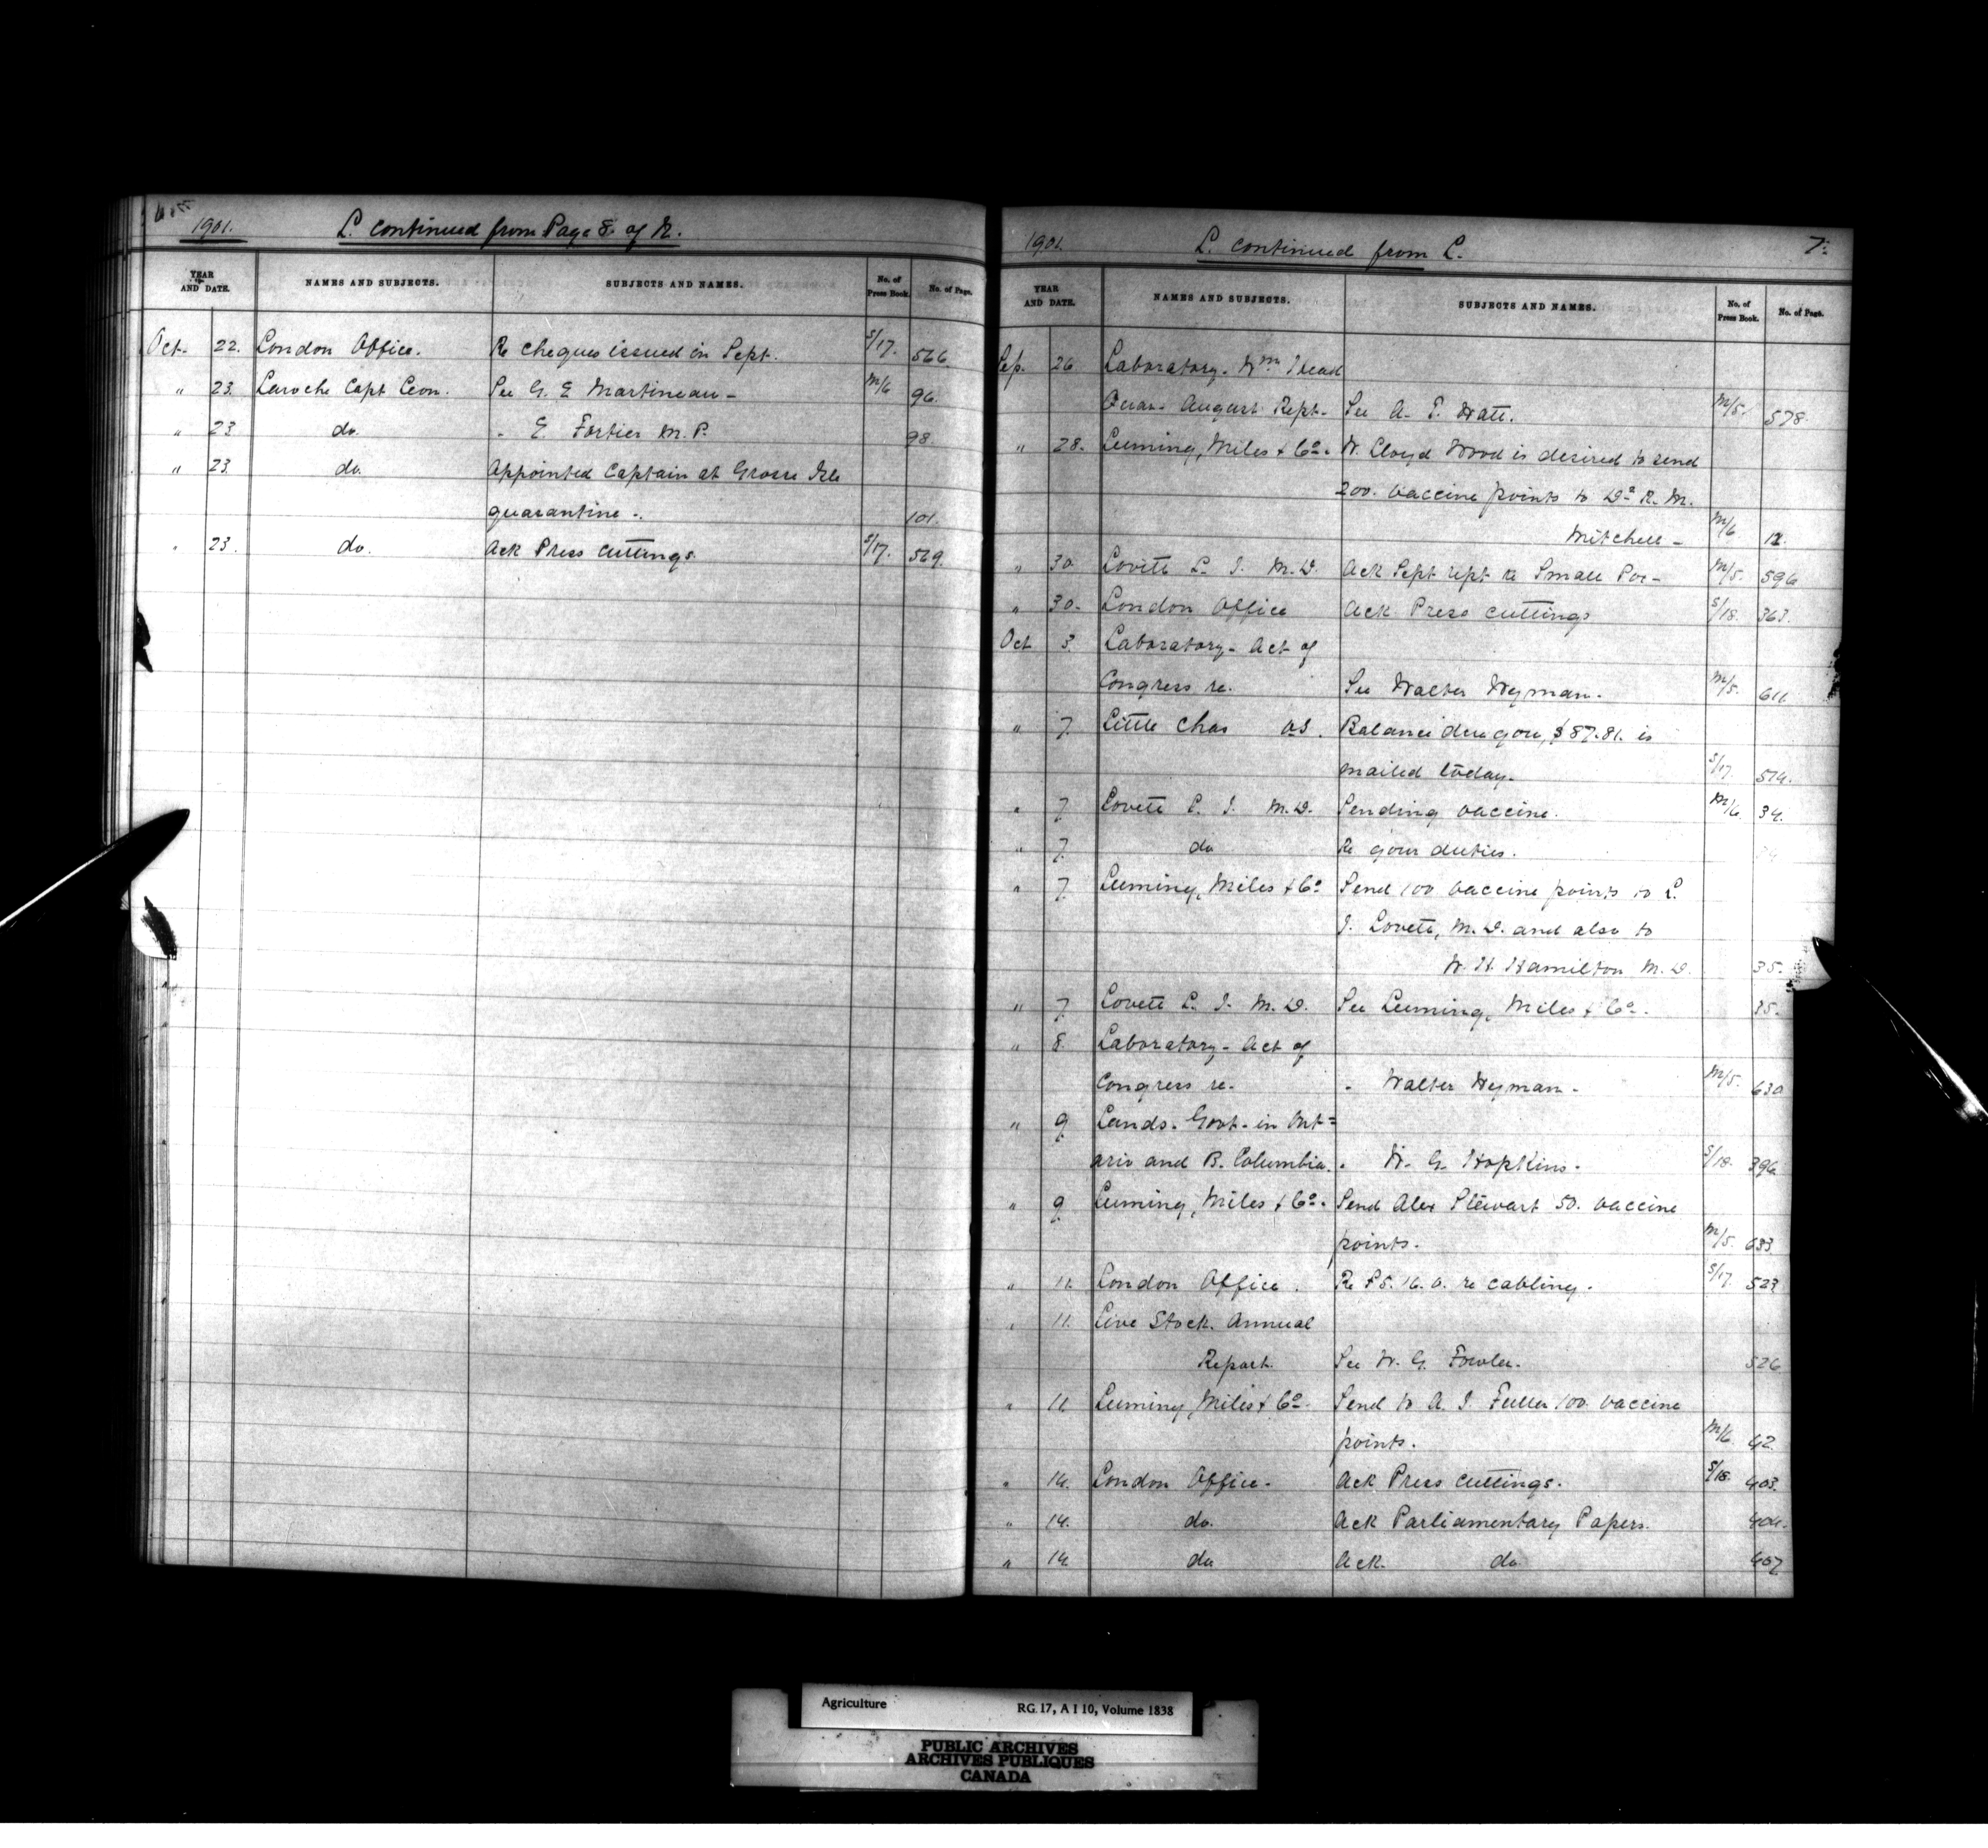 1901. L. continued from Page 8. of N.
YEAR AND DATE. NAMES AND SUBJECTS. SUBJECTS AND NAMES. No. of Press Book. No. of Page.
Oct. 22. London Office. Re cheques issued in Sept. S/17. 566.
" 23. Laroche Capt Leon. See G. E Martineau - M/6 96.
" 23 do. - E. Fortier M.P. 98.
" 23. do. Appointed Captain at Grosse Isle
quarantine -. 101.
" 23. do. Ack Press cuttings. S/17. 569.
1901. L. continued from L. 7.
YEAR AND DATE. NAMES AND SUBJECTS. SUBJECTS AND NAMES. No. of Press Book. No. of Page.
Sep. 26 Laboratory. Wm Head
Quar. August Rept. See A. T. Watt. M/5. 578.
" 28. Leeming, Miles & Co. W. Lloyd Wood is desired to send
200. vaccine points to Dr R. M.
Mitchell - M/6 12.
" 30. Lovett L. I. M.D. Ack Sept rept re Small Pox - M/5. 596
" 30. London Office Ack Press cuttings S/18. 363.
Oct 3. Laboratory - Act of
Congress re. See Walter Wyman. M/5. 611.
" 7. Little Chas Balance due you, $87.81. is
mailed today. S/17. 514.
" 7. Lovett L. I. M.D. Sending vaccine. M/6. 34.
" 7. do Re your duties.
" 7. Leeming, Miles & Co Send 100 vaccine points to L.
I. Lovett, M.D. and also to
W. H. Hamilton M.D. 35.
" 7. Lovett L. I. M.D. See Leeming, Miles & Co. 35.
" 8. Laboratory - Act of
Congress re. " Walter Wyman - M/5. 630
" 9. Lands. Govt. in Ont=
ario and B. Columbia. " W. G. Hopkins. S/18. 396
" 9. Leeming, Miles & Co. Send Alex Stewart 50. vaccine
points. M/5. 633
" 11. London Office. Re £5. 16. 0. re cabling. S/17. 523
" 11. Live Stock. Annual
Report. See W. G. Fowler. 526
" 11. Leeming, Miles & Co. Send to A. I. Fuller 100. vaccine
points. M/6. 42.
" 14. London Office. Ack Press cuttings. S/18. 403.
" 14. do. Ack Parliamentary Papers. 404.
" 14. do Ack. do 407
Agriculture RG 17, A I 10, Volume 1838
PUBLIC ARCHIVES
ARCHIVES PUBLIQUES
CANADA